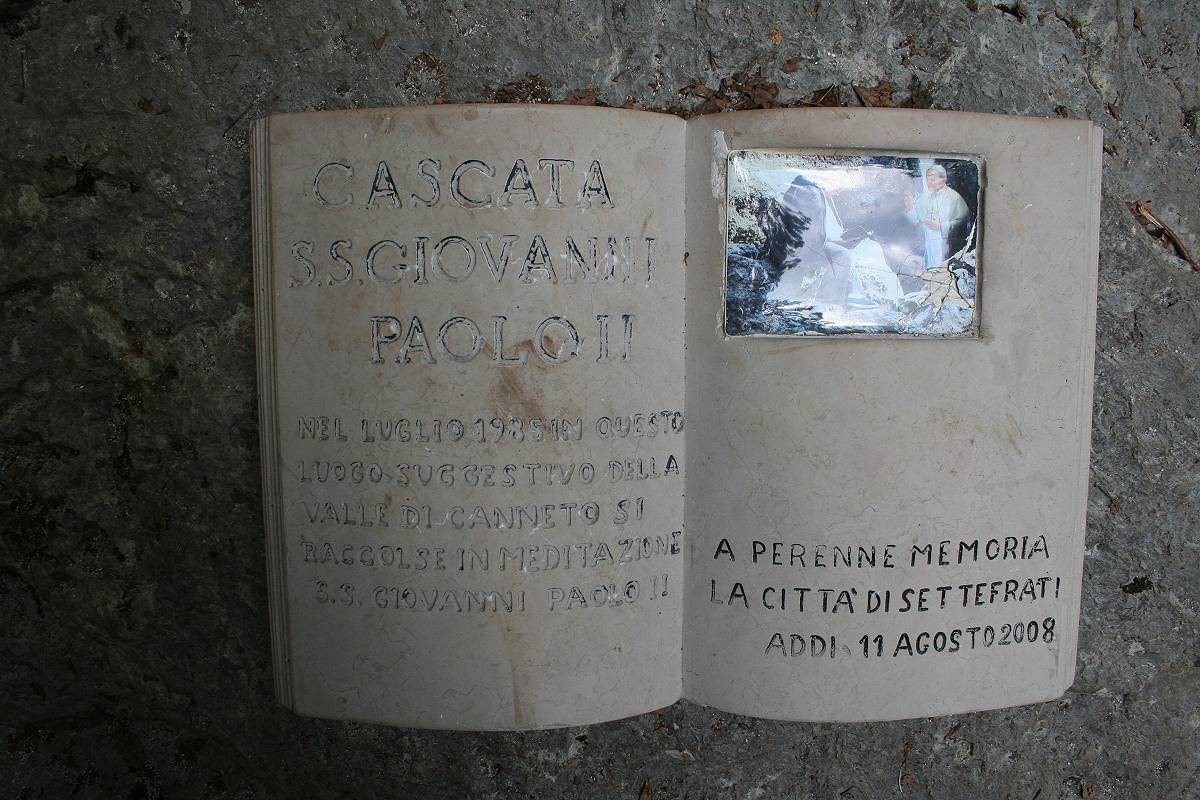 CASCATA
S.S. GIOVANNI
PAOLO II
NEL LUGLIO 1985 IN QUESTO
LUOGO SUGGESTIVO DELLA
VALLE DI CANNETO SI
RACCOLSE IN MEDITAZIONE
S.S. GIOVANNI PAOLO II
A PERENNE MEMORIA
LA CITTA' DI SETTEFRATI
ADDI, 11 AGOSTO 2008